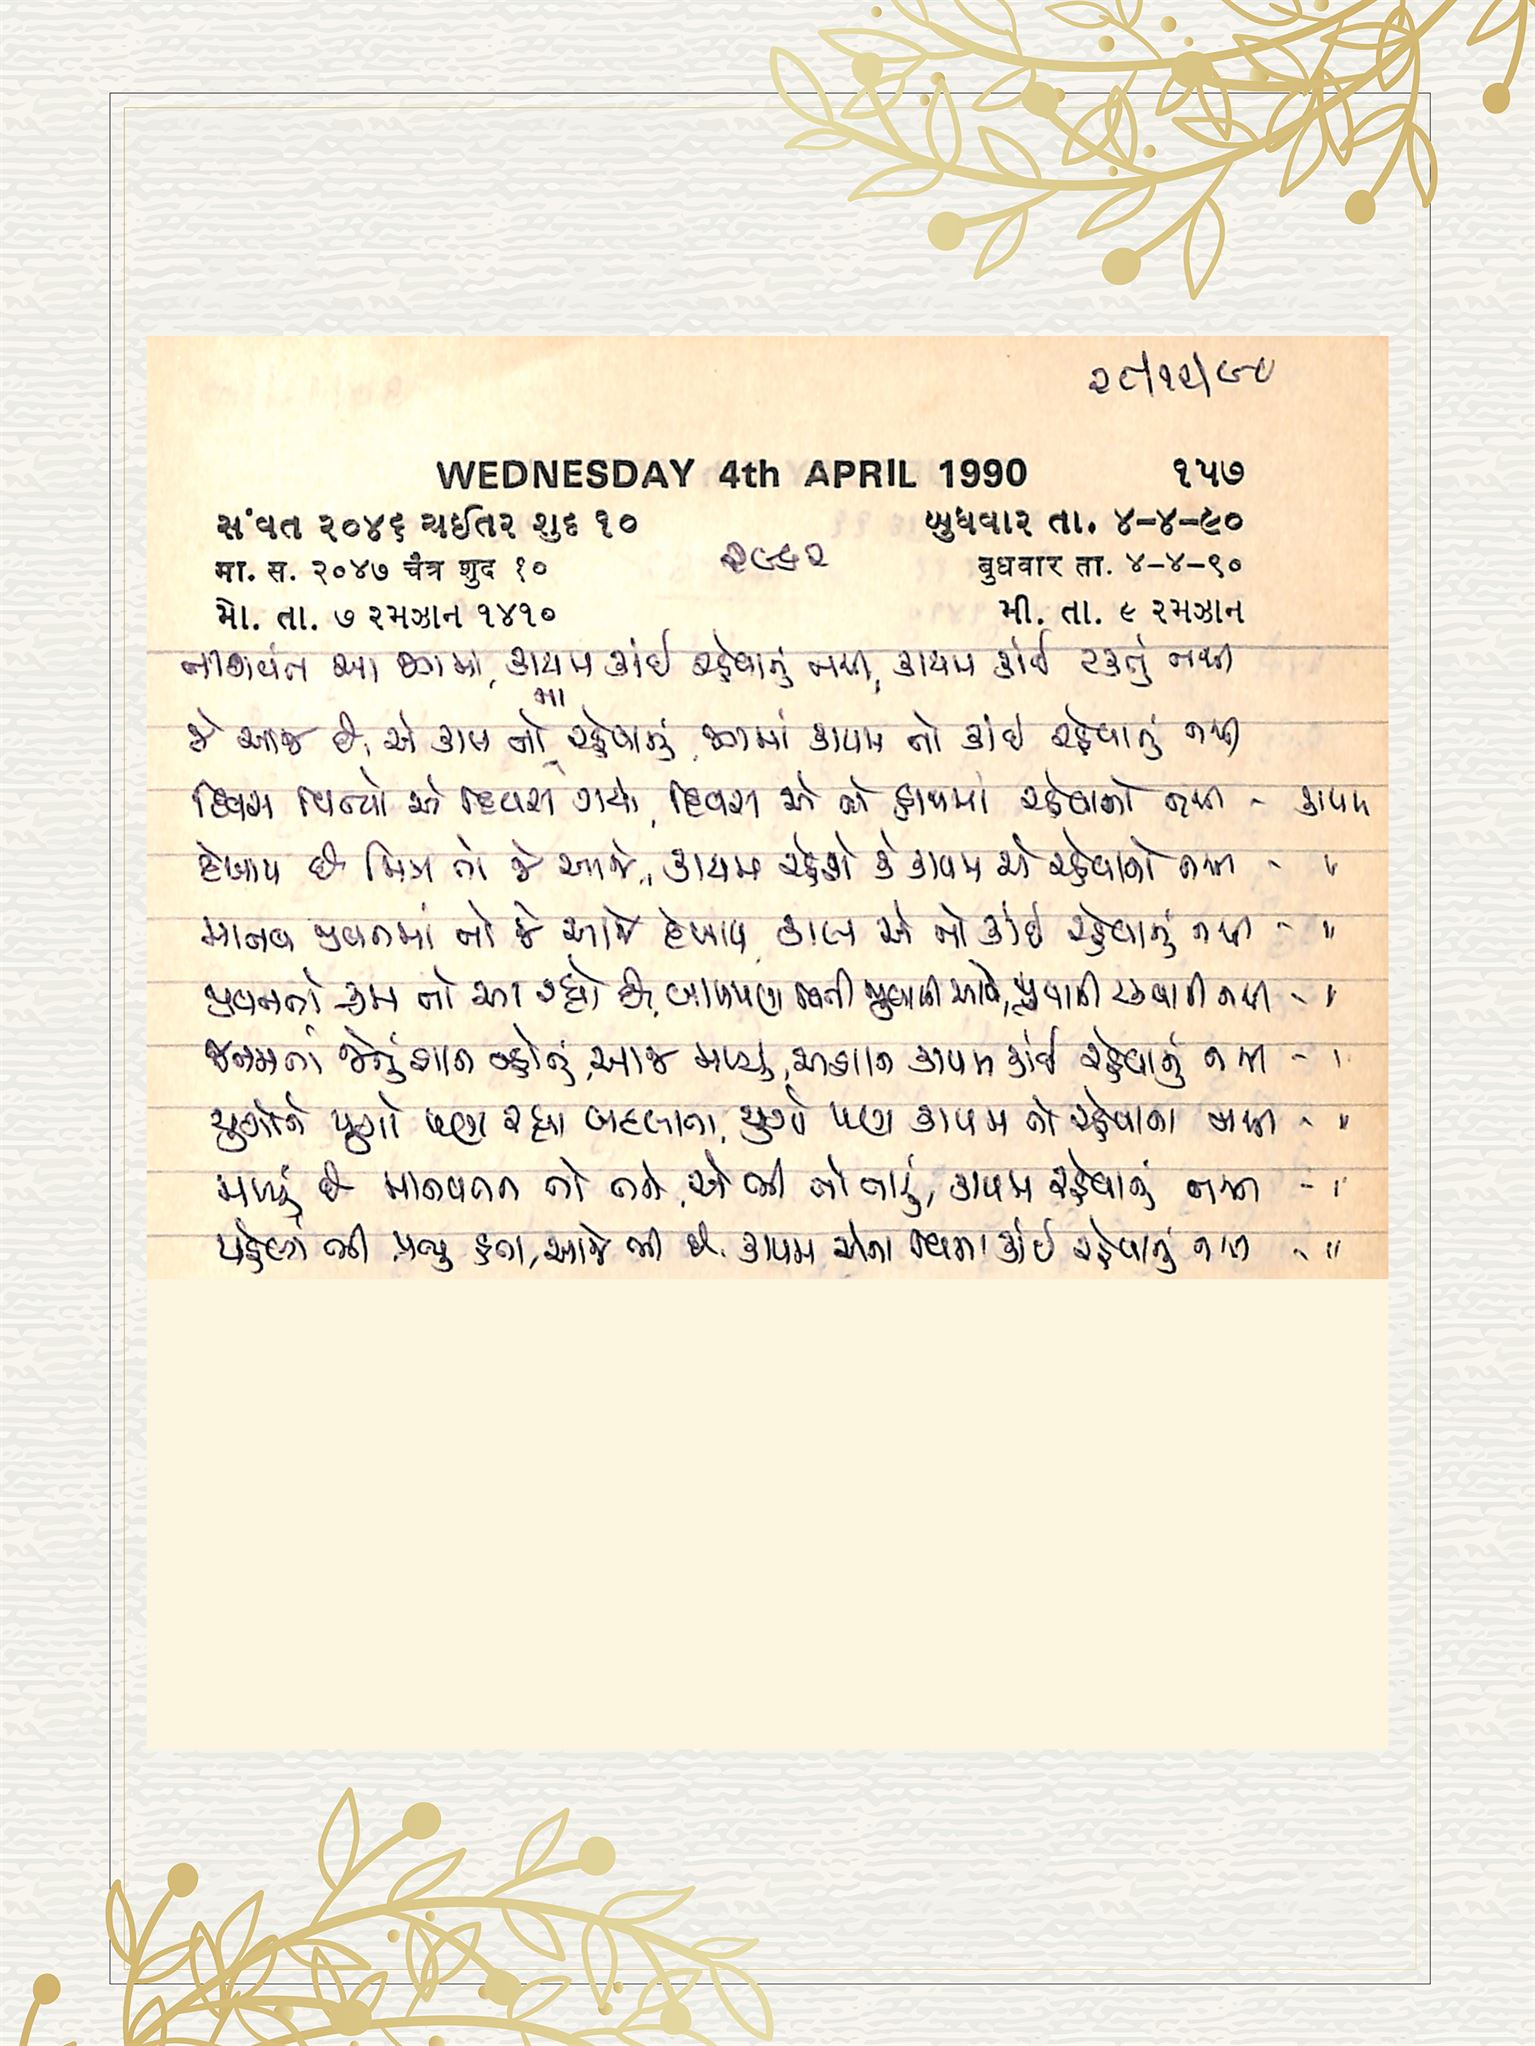 ૨૯/૧૨/૯૦
WEDNESDAY 4th APRIL 1990 ૧૫૭
સંવત ૨૦૪૬ ચઈતર શુદ ૧૦ બુધવાર તા. ૪-૪-૯૦
मा. स. २०४७ चैत्र शुद १० बुधवार ता. ४-४-९०
મો. તા. ૭ રમઝાન ૧૪૧૦ મી. તા. ૯ રમઝાન
આ જગમાં, કાયમ કાંઈ રહેવાનું નથી, કાયમ કાંઈ રહેતું નથી
મા
જે આજ છે, એ કાલ નો રહેવાનું, જગમાં કાયમ તો કાંઈ રહેવાનું નથી
દિવસ વિત્યો એ દિવસ ગયો, દિવસ એ તો હાથમાં રહેવાનો નથી - કાયમ
દેખાય છે મિત્ર તો જે આજે, કાયમ રહેશે કે કાયમ એ રહેવાનો નથી - "
માનવ જીવનમાં તો જે આજે દેખાય, કાલ એ તો કાંઈ રહેવાનું નથી - "
જીવનનો ક્રમ તો આ રહ્યો છે, બાળપણ વિતી જુવાની આવે, જુવાની રહેવાની નથી - "
જનમતાં જેનું જ્ઞાન ન્હોતું, આજ મળ્યું, અજ્ઞાન કાયમ કાંઈ રહેવાનું નથી - "
યુગોને યુગો પણ રહ્યા બદલાતા, યુગો પણ કાયમ તો રહેવાના નથી - "
મળ્યું છે માનવતન તો તને, એ બી તો તારું, કાયમ રહેવાનું નથી - "
પહેલાં બી પ્રભુ હતા, આજે બી છે, કાયમ એના વિના કાંઈ રહેવાનું નથી - "